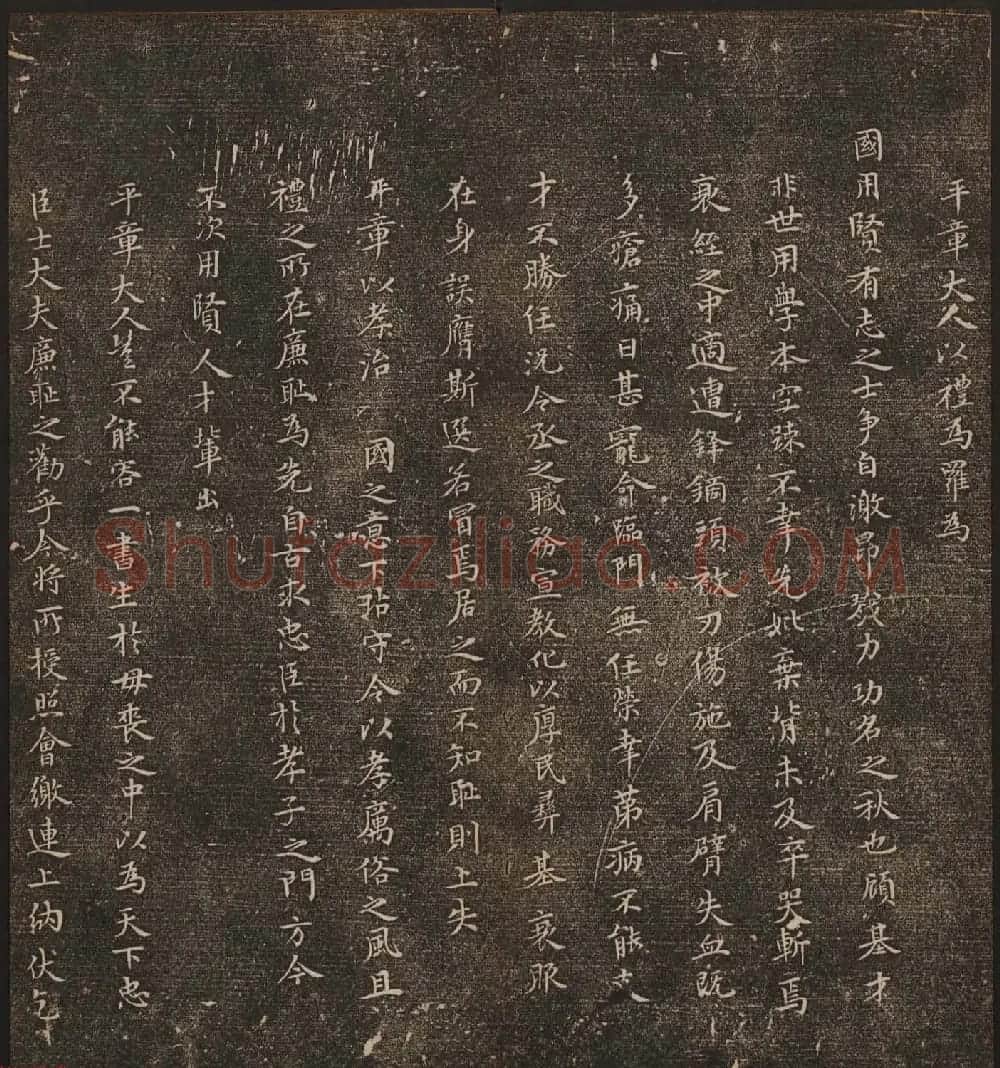 平章大人以禮為羅為
國用賢有志之士爭自激昂發力功名之秋也顧基才
非世用學本空疎不幸先妣棄背未及卒哭斬焉
衰絰之中適遭鋒鏑頭被刃傷施及肩臂失血既
多瘡痛日甚寵命臨門無任榮幸第病不能支
才不勝任況令丞之職務宣教化以厚民彝基衰服
在身誤膺斯選若冒焉居之而不知恥則上失
平章以孝治 國之意下玷守令以孝厲俗之風且
禮之所在廉恥為先自古求忠臣於孝子之門方今
不次用賢人才輩出
平章大人豈不能容一書生於母喪之中以為天下忠
臣士大夫廉恥之勸乎今將所授照會繳連上納伏乞
Shufaziliao.COM